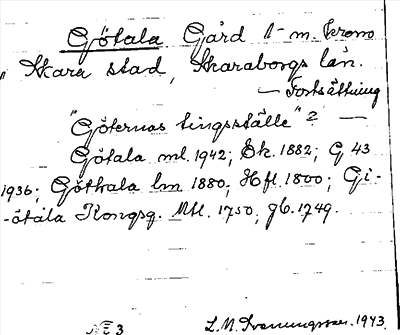 Götala Gård 1 m. krono
Skara stad, Skaraborgs län.
— Fortsättning
"Göternas tingsställe"? —
Götala ml. 1942; Ek. 1882; G 43
1936; Göthala lm 1880; Hfl. 1800; Gi-
-ötala Kongsg. Mtl. 1750; gb. 1749.
№ 3
L. M. Svenungsson. 1943.